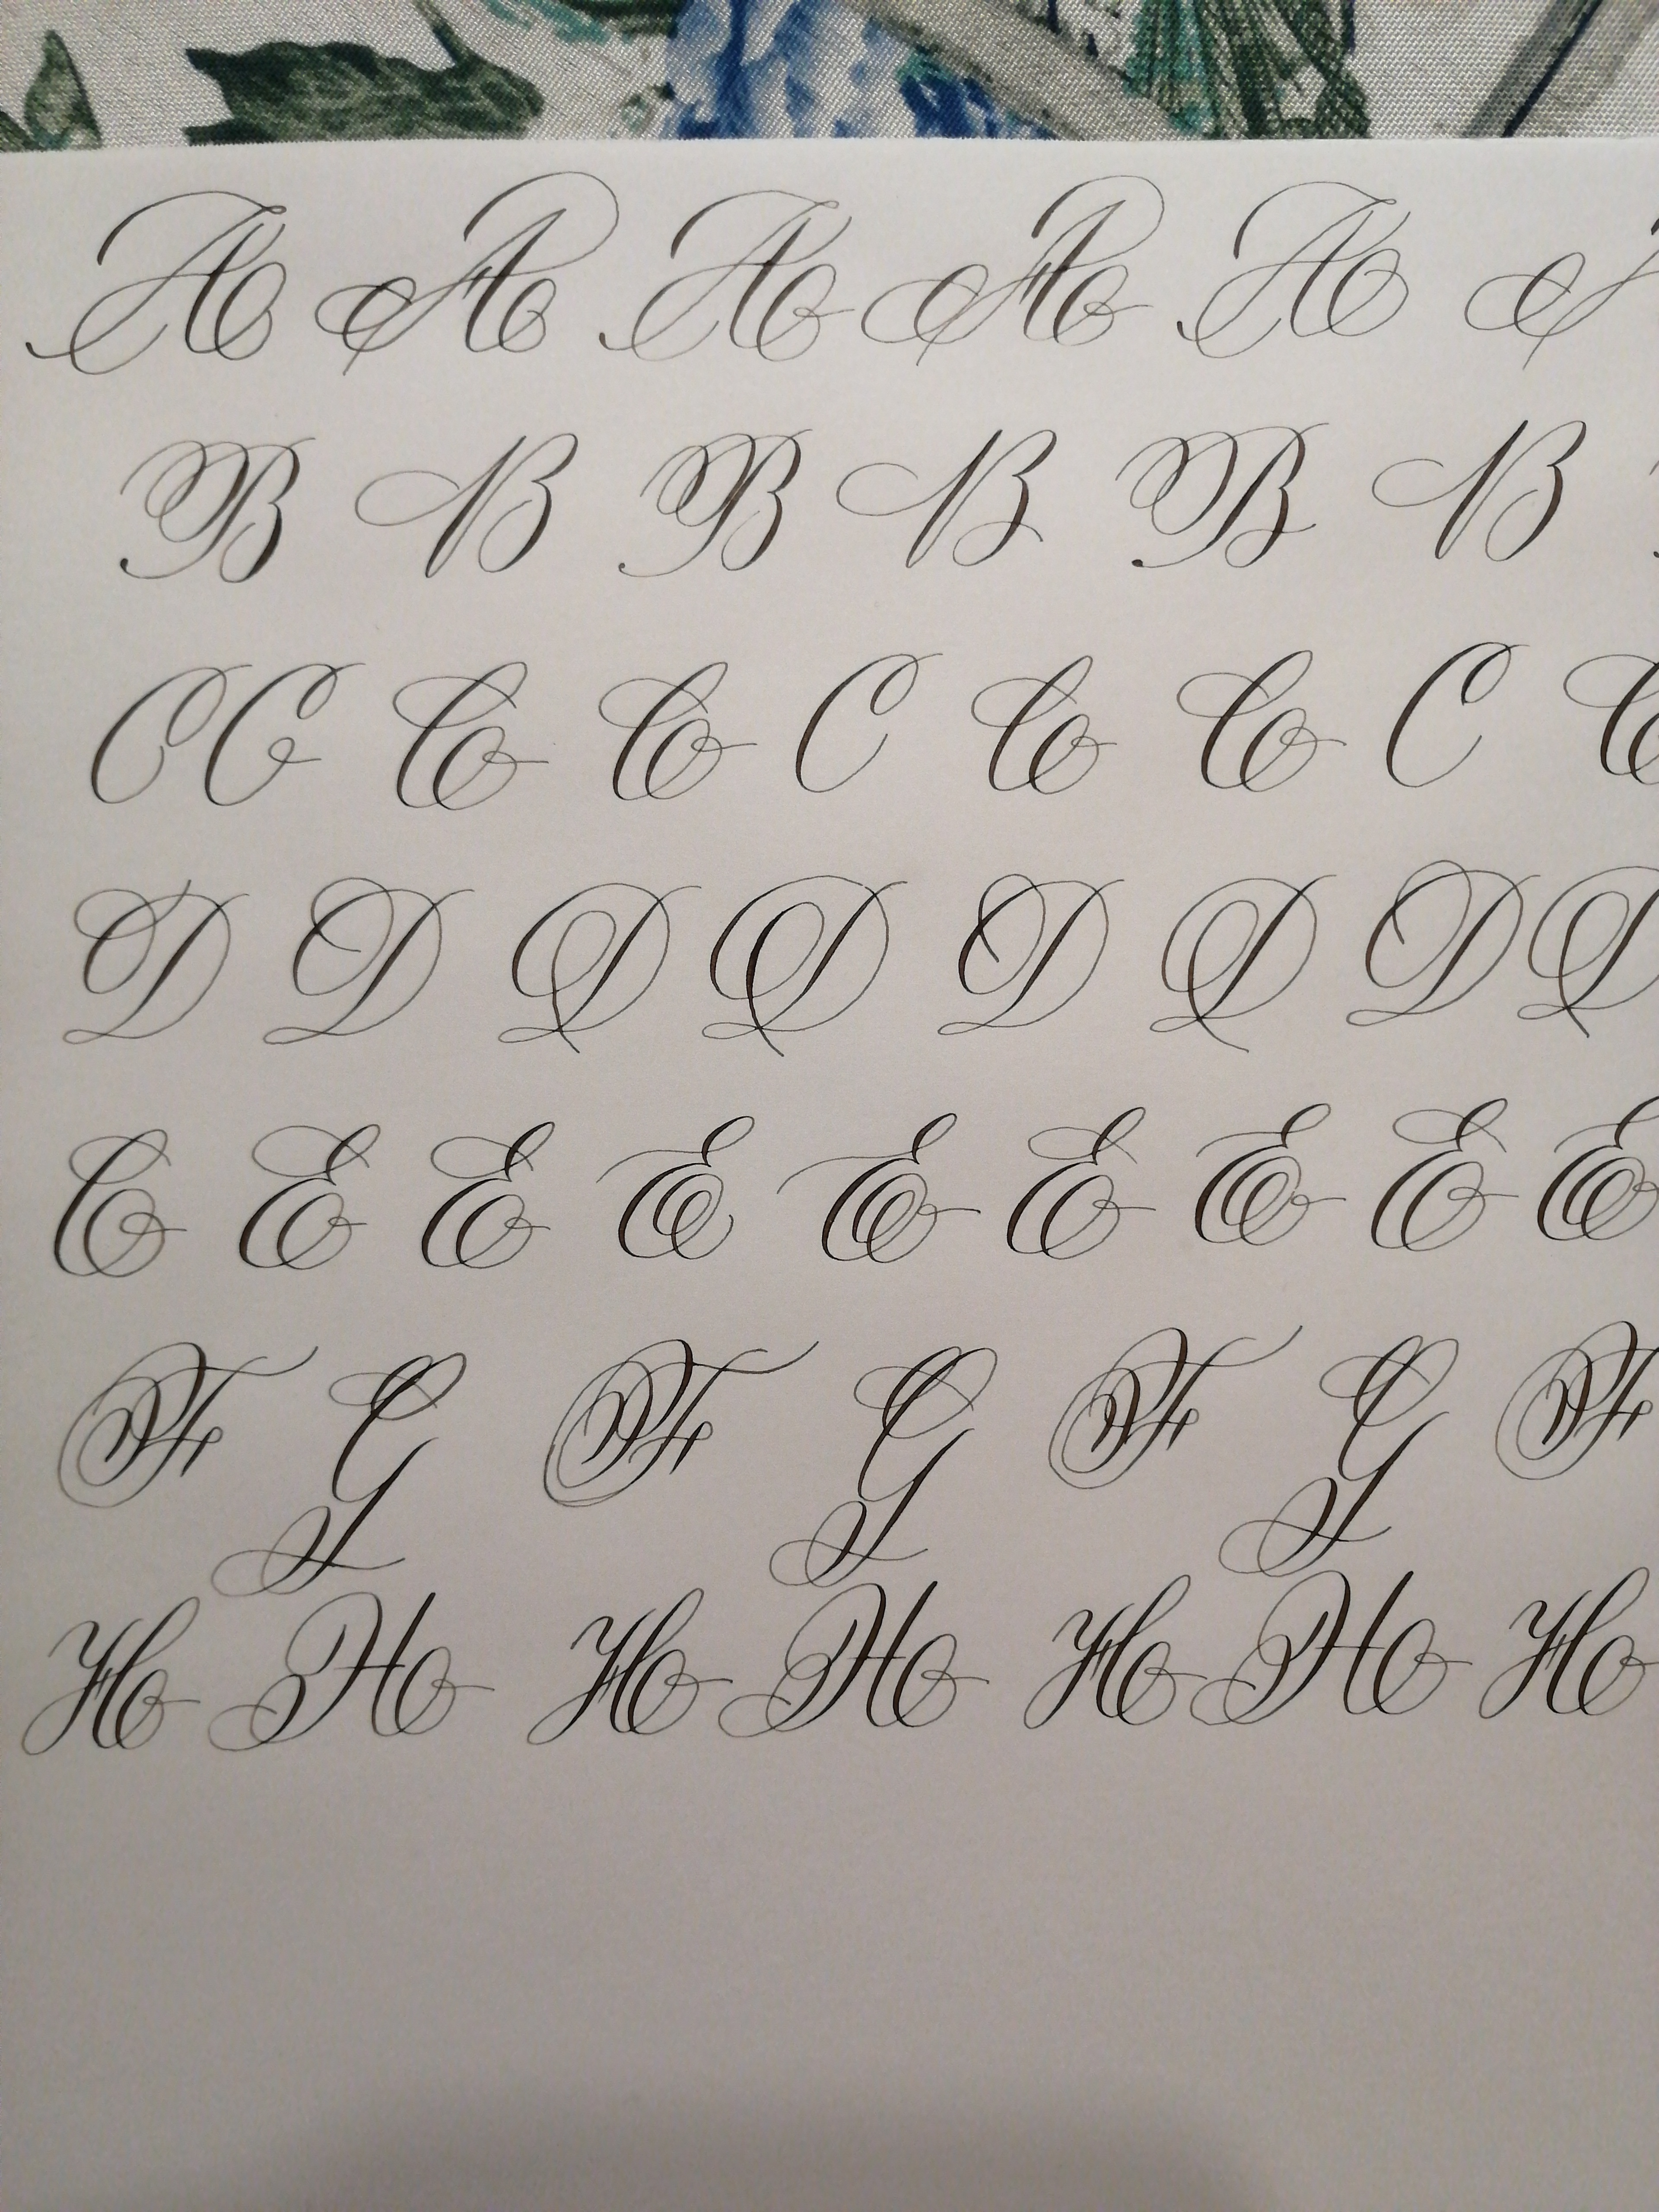 A A A A A
B B B B B B
C C C C C C C C C
D D D D D D D D
C E E E E E E E E
F G F G F G F
H H H H H H H